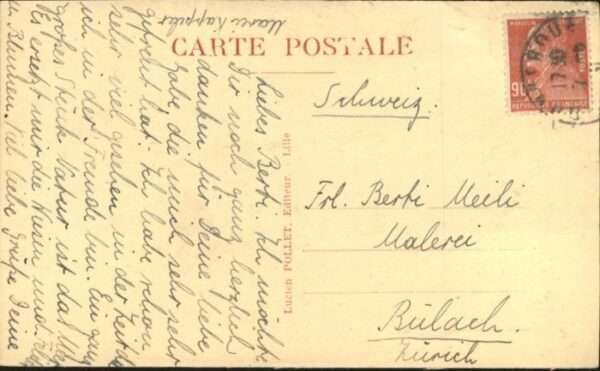 CARTE POSTALE
Liebes Berti. Ich möchte
Dir noch ganz herzlich
danken für Deine liebe
Karte die mich sehr sehr
gefreut hat. Ich habe schon
sehr viel gesehen in der Zeit da
ich in der Fremde bin. Ein ganz
grosses Stück Natur ist das Meer
Es ersetzt mir die Wiesen und
Blumen. Viel liebe Grüsse Deine
Marie Kappeler
Lucien POLLET, Editeur Lille
Schweiz.
Frl. Berti Meili
Malerei
Bülach.
Zürich
90
POSTES
REPUBLIQUE FRANÇAISE
17